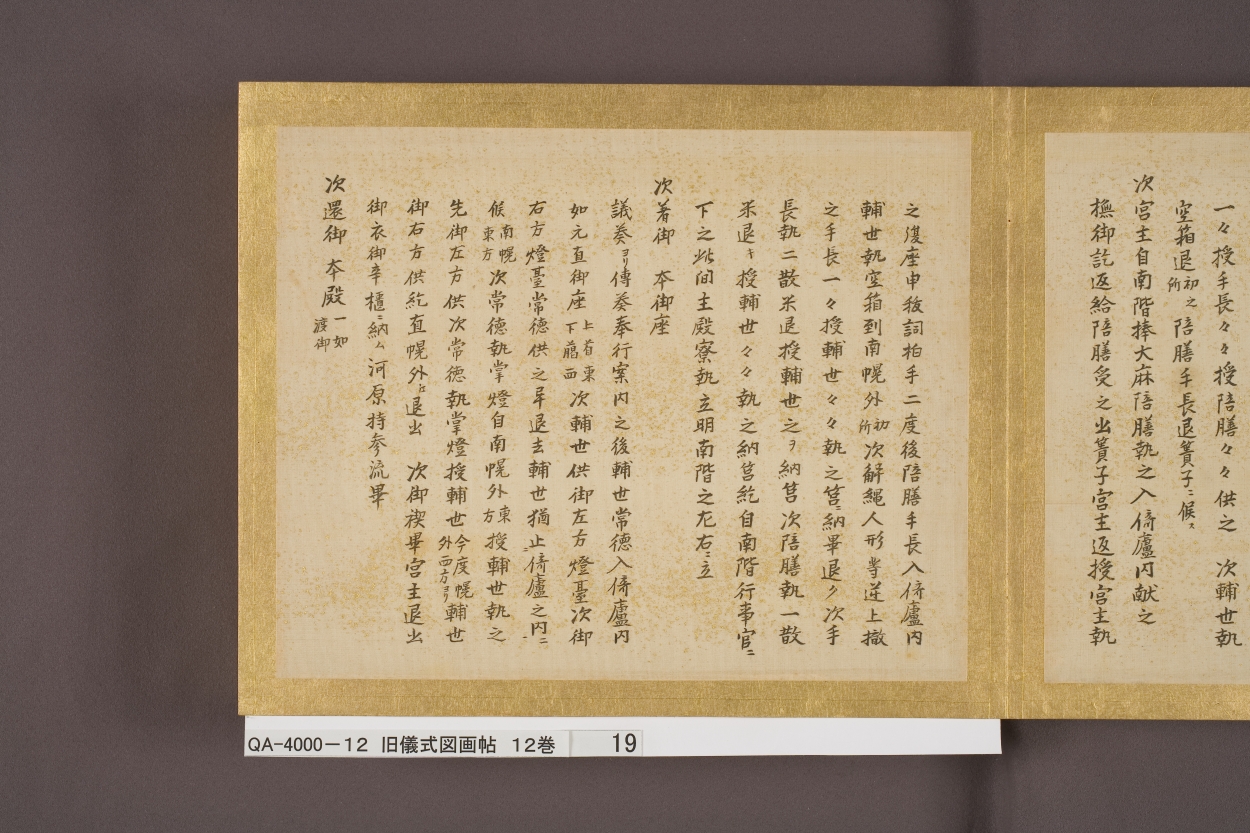 一々授手長々々授陪膳々々供之　次輔世執
空箱退初之所陪膳手長退簀子ニ候ス
次宮主自南階捧大麻陪膳執之入倚廬内献之
撫御訖返給陪膳受之出簀子宮主返授宮主執
之復座申祓詞拍手二度後陪膳手長入倚廬内
輔世執空箱到南幌外初所次解縄人形等逆上撤
之手長一々授輔世々々執之筥ニ納畢退ク次手
長執二散米退授輔世之ヲ納筥次陪膳執一散
米退キ授輔世々々執之納筥訖自南階行事官ニ
下之此間主殿寮執立明南階之左右ニ立
次着御　本御座
議奏ヨリ傳奏奉行案内之後輔世常徳入倚廬内
如元直御座上首東下﨟西次輔世供御左方燈臺次御
右方燈臺常徳供之畢退去輔世猶止倚廬之内ニ
候南幌東方次常徳執掌燈自南幌外東方授輔世執之
先御左方供次常徳執掌燈授輔世今度幌外西方ヨリ輔世
御右方供訖直幌外江退出　次御禊畢宮主退出
御衣御辛櫃ニ納ム河原持参流畢
次還御　本殿一如渡御
QA-4000-12　旧儀式図画帖　12巻　19